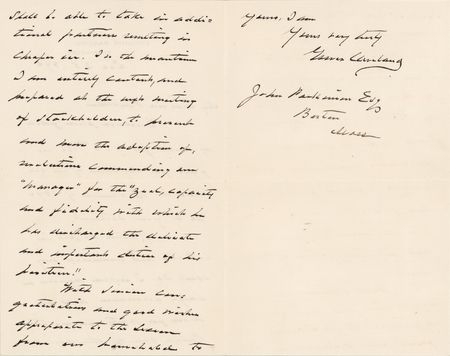 shall be able to take in addi-
tional partners resulting in
cheaper ice. In the meantime
I am entirely content, and
prepared at the next meeting
of Stockholders, to present
and move the adoption of,
resolutions commending our
"Manager" for the "zeal, capacity
and fidelity with which he
has discharged the delicate
and important duties of his
position."
With sincere con-
gratulations and good wishes
appropriate to the season
from our household to
Yours, I am
Yours very truly
Grover Cleveland
John Parkinson Esq
Boston
Mass